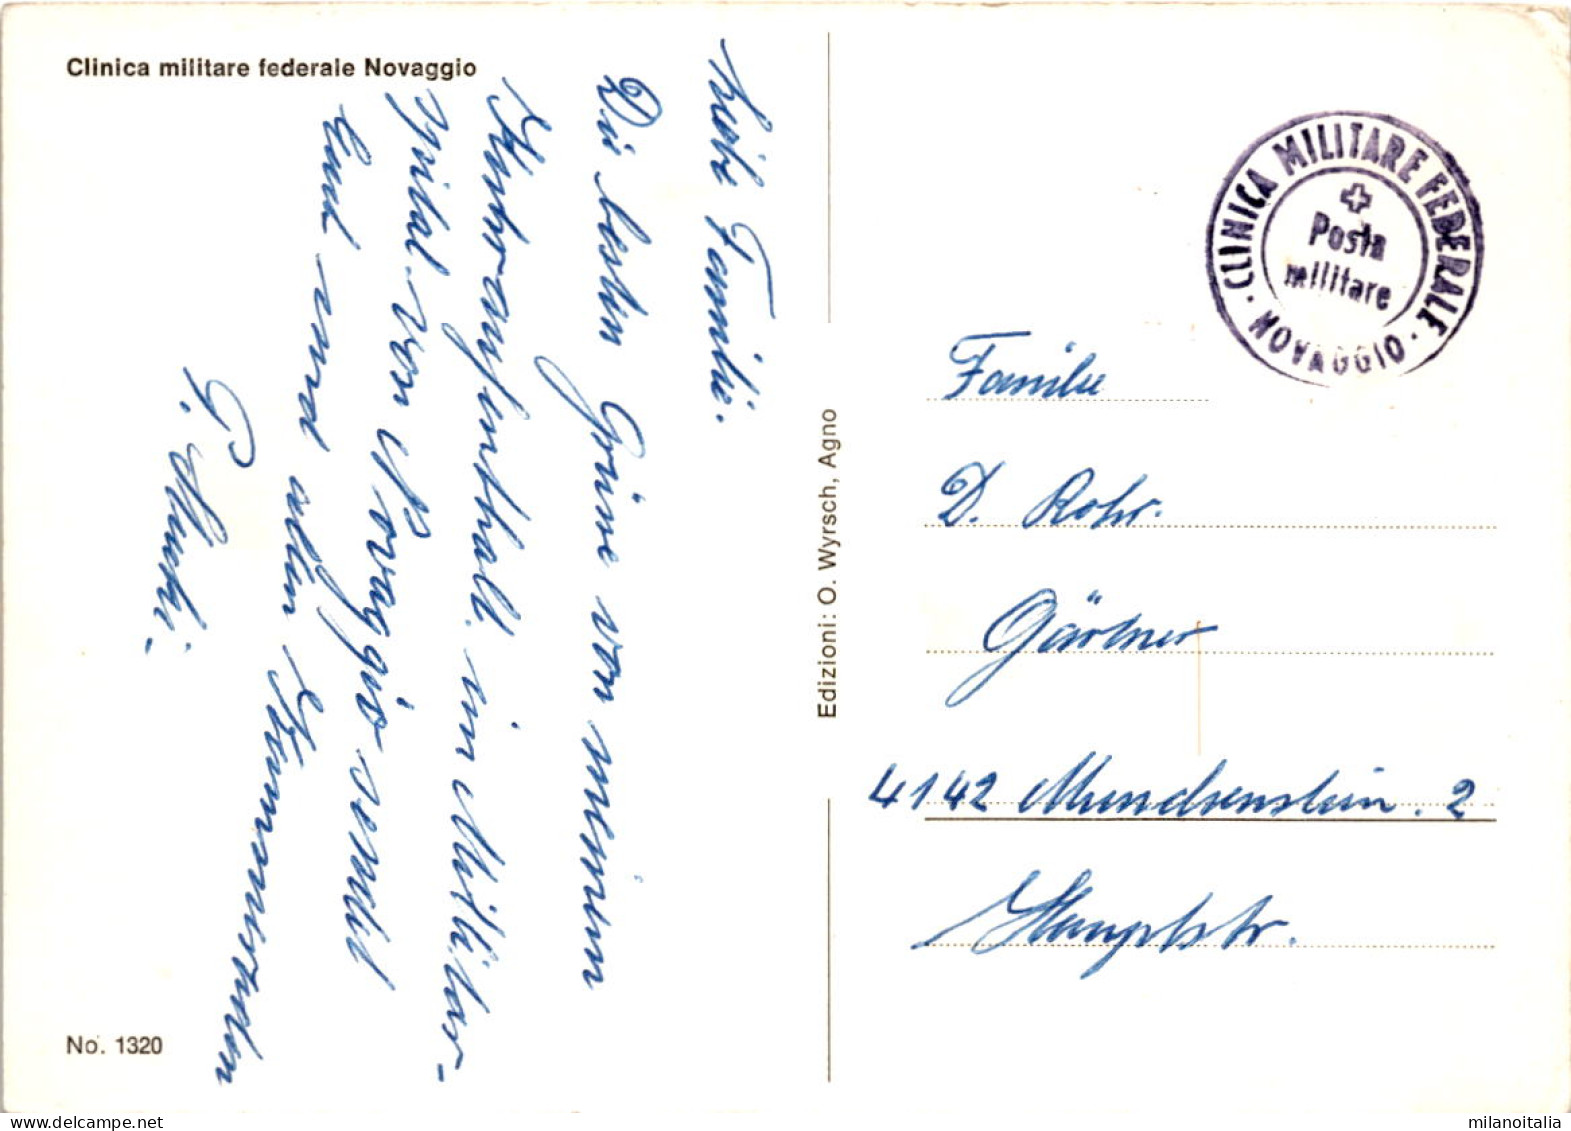 Clinica militare federale Novaggio
Liebe Familie.
Die besten Grüsse von meinem
Kuraufenthalt im Militär-
spital von Novaggio sendet
Euch und allen Kommenden
P.
No. 1320
Edizioni: O. Wyrsch, Agno
· CLINICA MILITARE FEDERALE ·
Posta
militare
NOVAGGIO
Familie
D. Rohr.
Gärtner
4142 Munchenstein. 2
Hauptstr.
milanoitalia